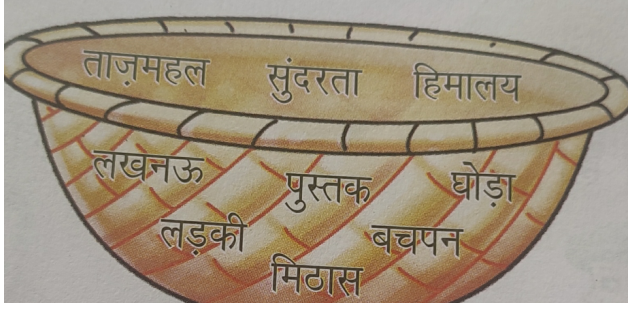 ताज़महल सुंदरता हिमालय
लखनऊ पुस्तक घोड़ा
लड़की बचपन
मिठास